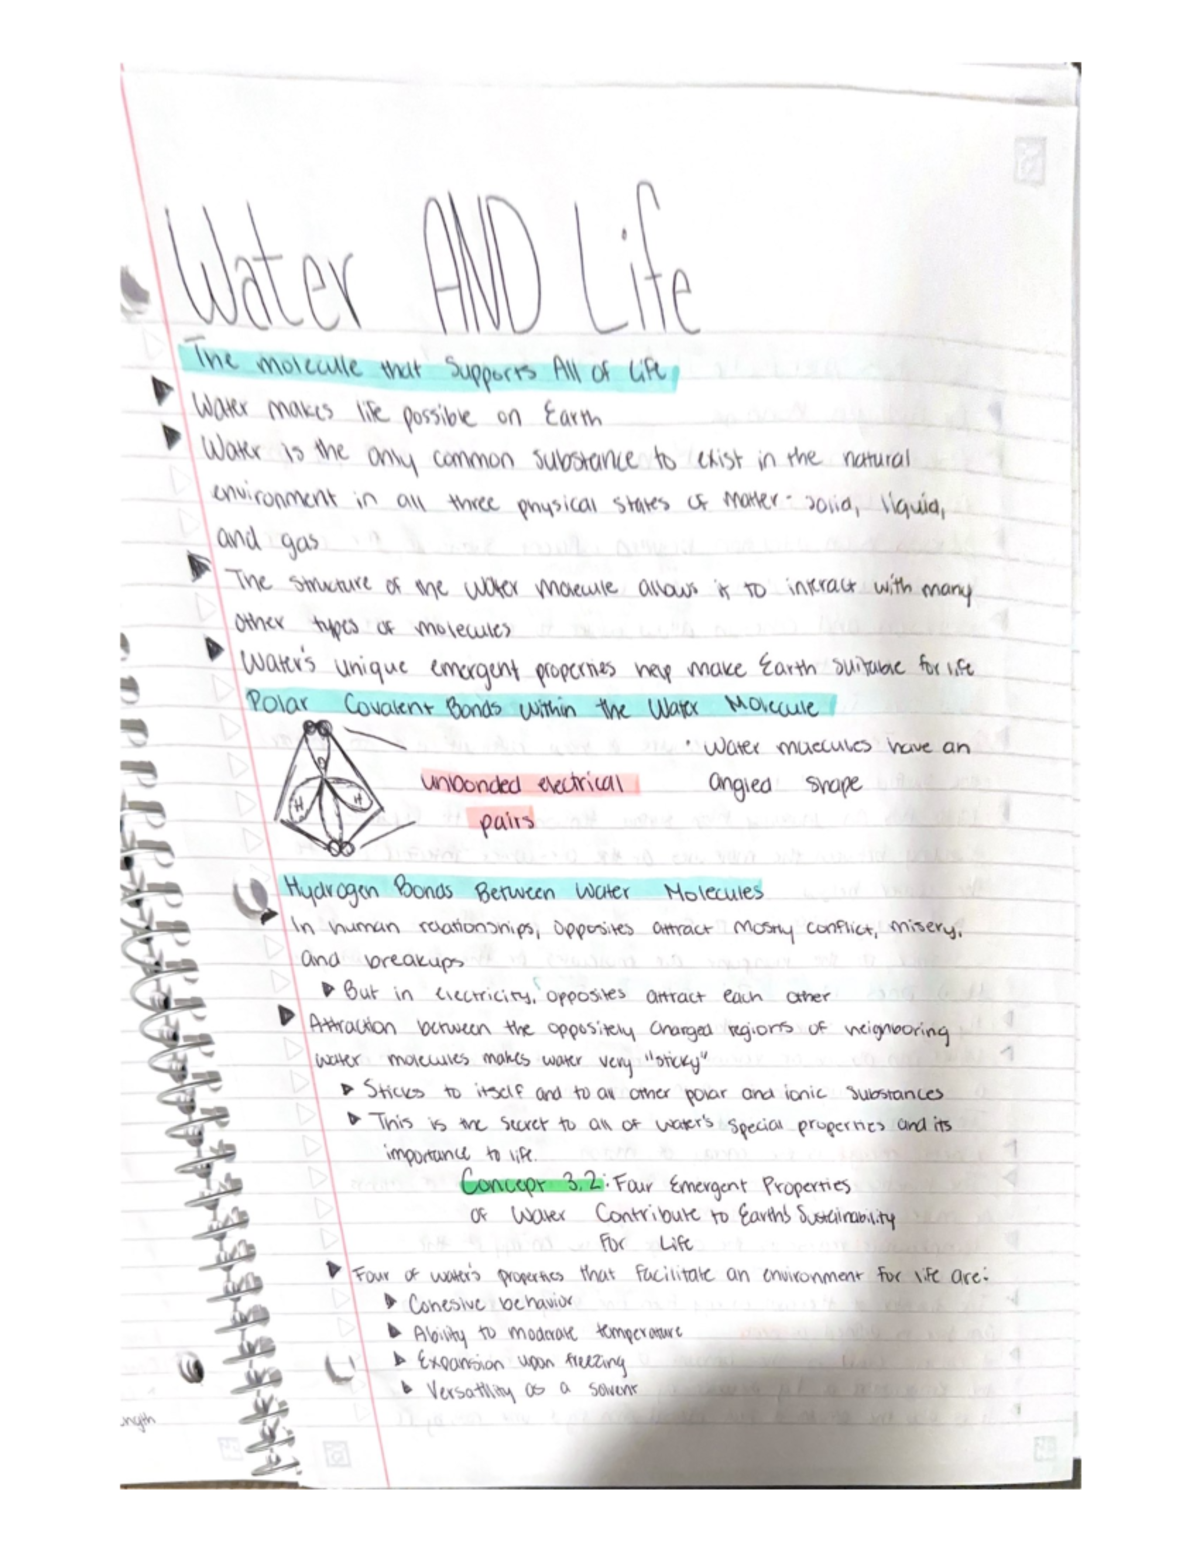 Water AND Life
The molecule that Supports All of Life
Water makes life possible on Earth
Water is the only common substance to exist in the natural
environment in all three physical states of matter - solid, liquid,
and gas
The structure of the water molecule allows it to interact with many
other types of molecules
Water's unique emergent properties help make Earth suitable for life
Polar Covalent Bonds within the Water Molecule
• Water muecules have an
unbonded electrical
angled shape
pairs
H H
Hydrogen Bonds Between Water Molecules
In human relationships, opposites attract mostly conflict, misery,
and breakups
But in electricity, opposites attract each other
Attraction between the oppositely charged regions of neighboring
water molecules makes water very "sticky"
Sticks to itself and to all other polar and ionic substances
This is the secret to all of water's special properties and its
importance to life.
Concept 3.2: Four Emergent Properties
of Water Contribute to Earth's Sustainability
For Life
Four of water's properties that facilitate an environment for life are:
Cohesive behavior
Ability to moderate temperature
Expansion upon freezing
Versatility as a solvent
ngth